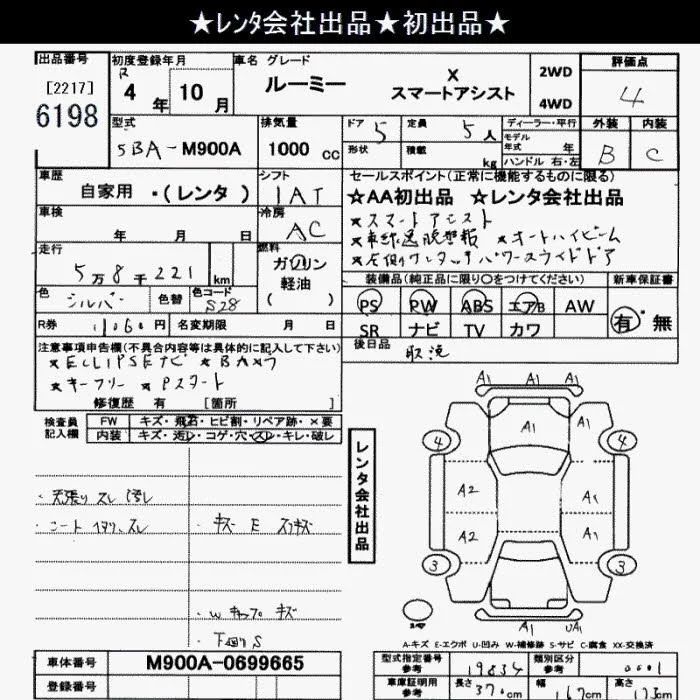 ★レンタ会社出品★初出品★
出品番号
[2217]
6198
初度登録年月
R
4 年 10 月
車名 グレード
ルーミー X スマートアシスト
2WD
4WD
評価点
4
外装 内装
B C
型式
5BA-M900A
排気量
1000 cc
ドア 5
定員 5人
形状
積載 kg
ディーラー・平行
モデル
年式 年
ハンドル 右・左
車歴
自家用 ・(レンタ )
シフト
IAT
セールスポイント(正常に機能するものに限る)
★AA初出品 ★レンタ会社出品
★スマートアシスト
★車線逸脱警報 ★オートハイビーム
★左側ワンタッチパワースライドドア
車検
年 月 日
冷房
AC
走行
5万8千221 km
燃料
ガソリン
軽油
( )
色 シルバー
色替
色コード S28
装備品(純正品に限り○をつけてください)
PS PW ABS エアB AW
SR ナビ TV カワ
新車保証書
有・無
R券 11060 円
名変期限 月 日
後日品
取説
注意事項申告欄(不具合内容等は具体的に記入して下さい)
★ECLIPSEナビ ★Bカメラ
★キーフリー ★Pスタート
修復歴 有 [箇所 ]
検査員
記入欄
FW キズ・飛石・ヒビ割・リペア跡・×要
内装 キズ・汚レ・コゲ・穴・スレ・キレ・破レ
・天張り スレ 汚レ
・シート ヘタリ、スレ
・キズ E スリキズ
・Wキャップ キズ
・下回り S
レンタ会社出品
A1 A1 A1
4 A1 A1 4
A2 A1
A2 A1
3 3
A1 UA1
A-キズ E-エクボ U-凹み W-補修跡 S-サビ C-腐食 XX-交換済
車体番号 M900A-0699665
登録番号
型式指定番号
参考 19834
類別区分
参考 0001
車庫証明用
参考
長さ 370 cm
幅 167 cm
高さ 173 cm